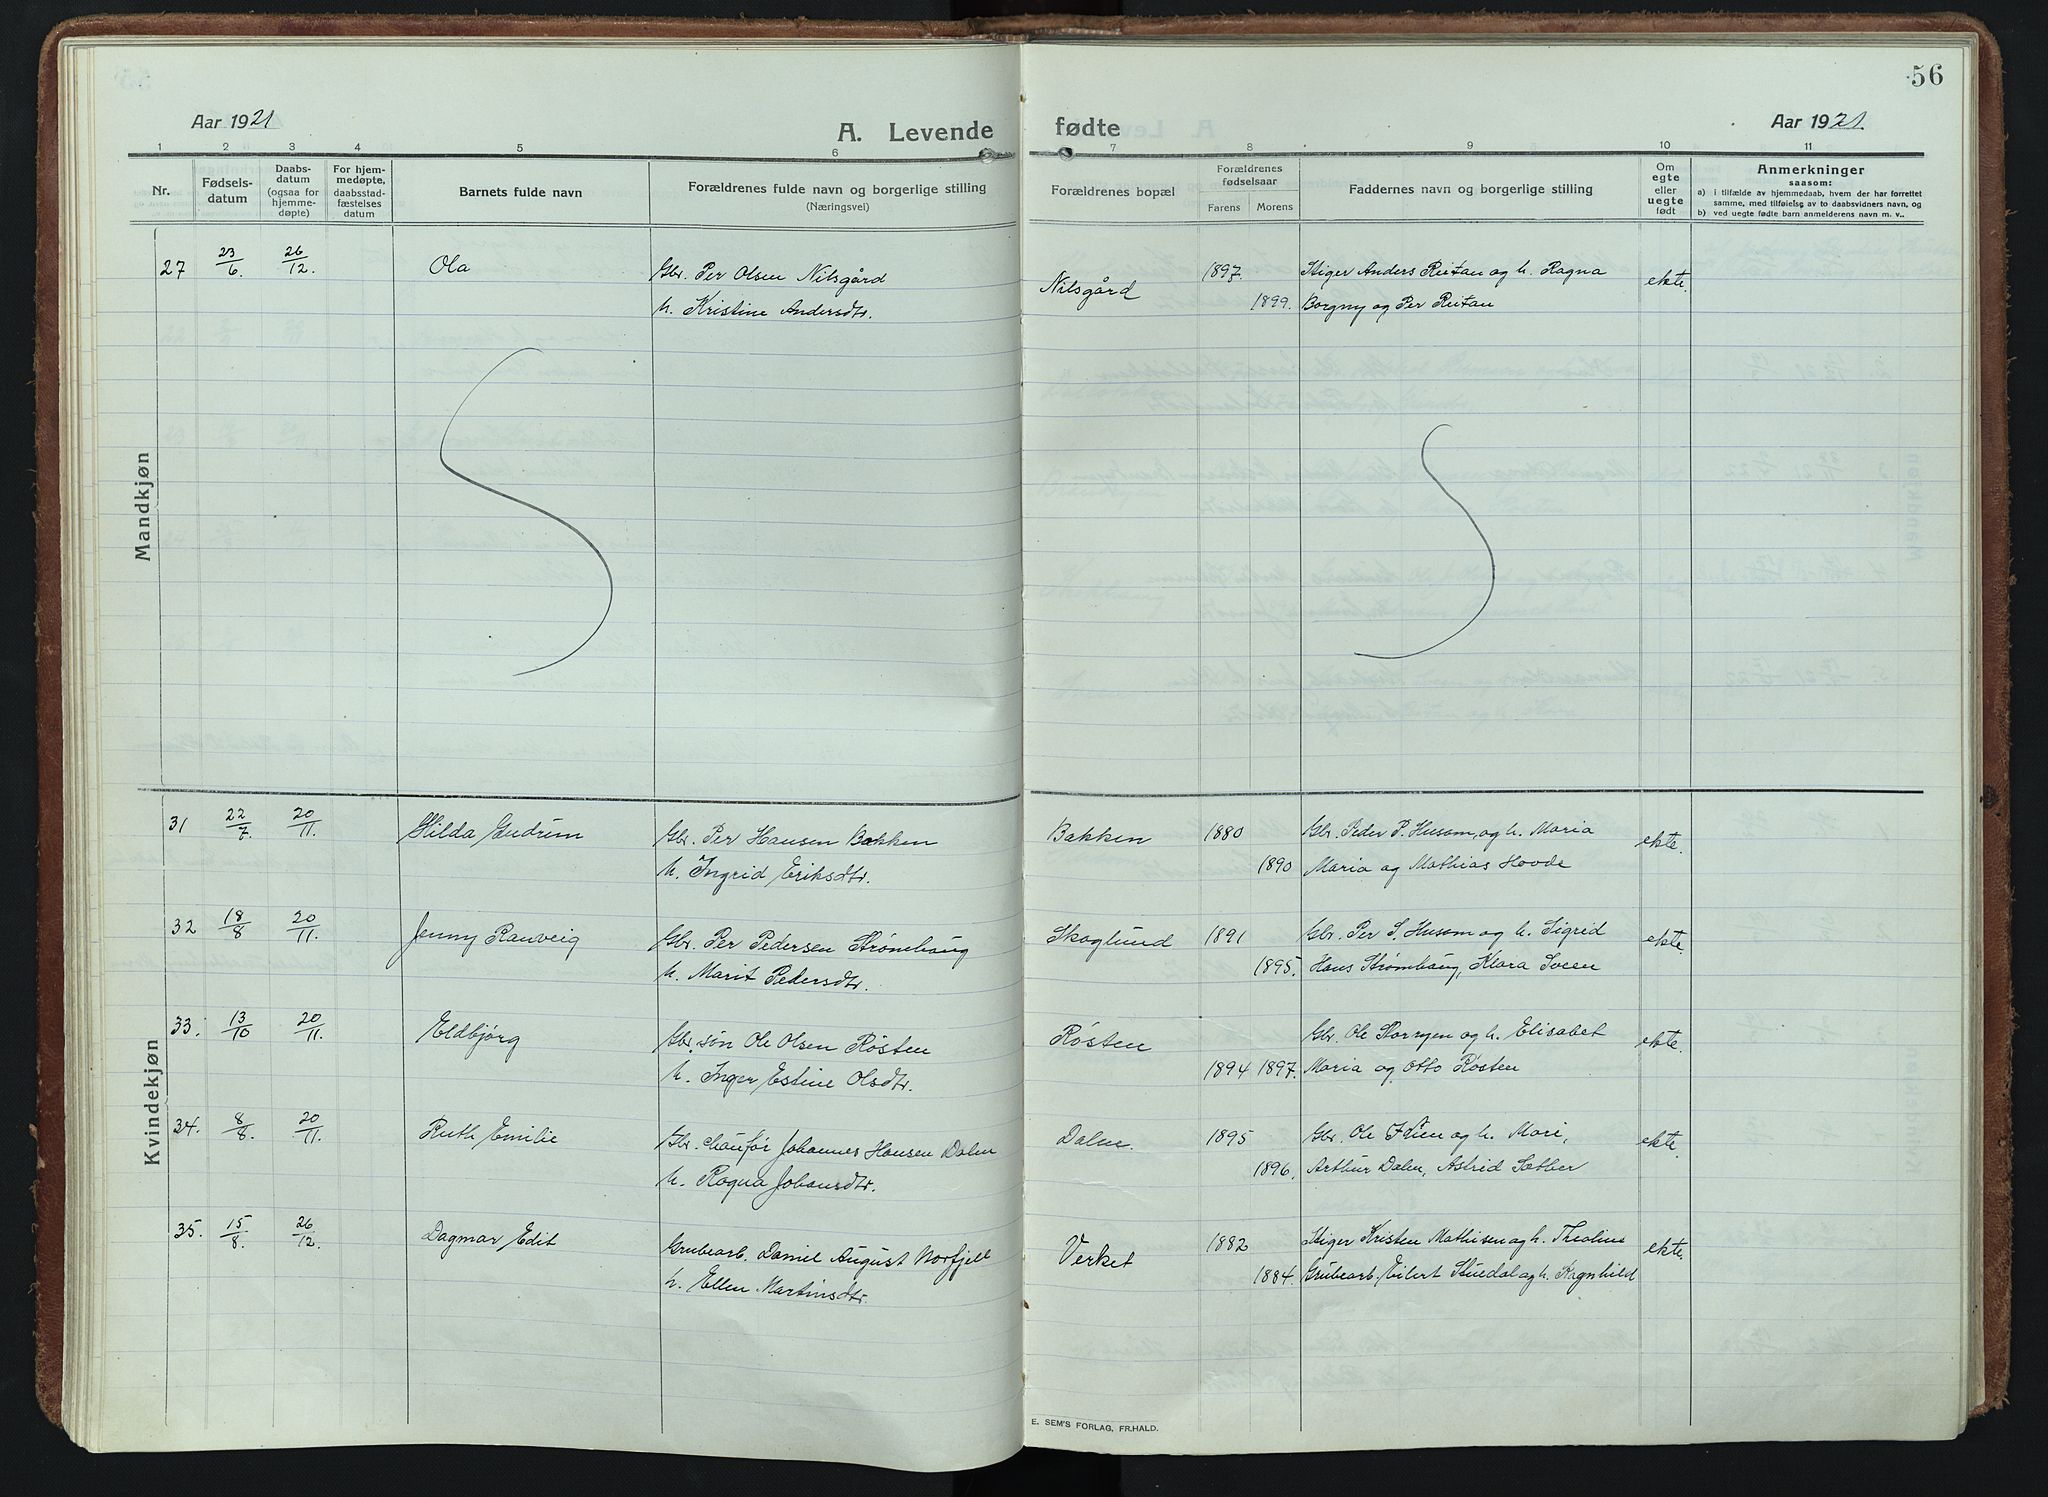 56
Aar 1921
A. Levende fødte
Aar 1921
1 2 3 4 5 6 7 8 9 10 11
Nr.
Fødselsdatum
Daabsdatum (ogsaa for hjemmedøpte)
For hjemmedøpte, daabsstadfæstelses datum
Barnets fulde navn
Forældrenes fulde navn og borgerlige stilling
(Næringsvei)
Forældrenes bopæl
Forældrenes fødselsaar
Farens Morens
Faddernes navn og borgerlige stilling
Om egte eller uegte født
Anmerkninger
saasom:
a) i tilfælde av hjemmedaab, hvem der har forrettet
samme, med tilføielse av to daabsvidners navn, og
b) ved uegte fødte barn anmelderens navn m. v..
Mandkjøn
27 23/6. 26/12. Ola Gbr. Per Olsen Nilsgård Nilsgård 1897. Stiger Anders Reitan og h. Ragna ekte.
h. Kristine Andersdtr. 1899. Borgny og Per Reitan
Kvindekjøn
31 22/7. 20/11. Hilda Gudrun Gbr. Per Hansen Bakken Bakken 1880 Gbr. Peder P. Husom, og h. Maria ekte.
h. Ingrid Eriksdtr. 1890 Maria og Mathias Hovde
32 18/8 20/11. Jenny Ranveig Gbr. Per Pedersen Strømhaug Skoglund 1891 Gbr. Per S. Husom og h. Sigrid ekte.
h. Marit Pedersdtr. 1895. Hans Strømhaug, Klara Sveen
33. 13/10 20/11. Eldbjørg Gbr. søn Ole Olsen Røsten Røsten Gbr. Ole Storryen og h. Elisabet ekte.
h. Inger Estine Olsdtr. 1894 1897. Maria og Otto Røsten
34. 8/8. 20/11. Ruth Emilie Gbr. chaufør Johannes Hansen Dalen Dalen. 1895 Gbr. Ole h. Mari, ekte.
h. Ragna Johansdtr. 1896. Arthur Dalen, Astrid Sætber
35. 15/8. 26/12. Dagmar Edit Grubearb. Daniel August Norfjell Verket 1882 Stiger Kristen Mathisen og h. Theoline ekte.
h. Ellen Martinsdtr. 1884. Grubearb. Eilert Stuedal og h. Ragnhild
E. SEM'S FORLAG, FR.HALD.